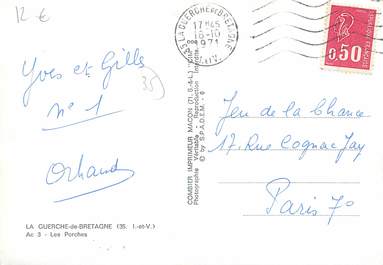 12 €
35 LA GUERCHE DE BRETAGNE
17H45
18-10
1971
I.-&-V.
0.50
Yves et Gille
n° 1
Orhand
35
COMBIER IMPRIMEUR MACON (71, S.-&-L.)
Photographie Véritable - Reproduction Interdite
© by S.P.A.D.E.M.
Jeu de la Chance
17, Rue Cognac Jay
Paris 7o
LA GUERCHE-de-BRETAGNE (35. I.-et-V.)
Ac 3 - Les Porches